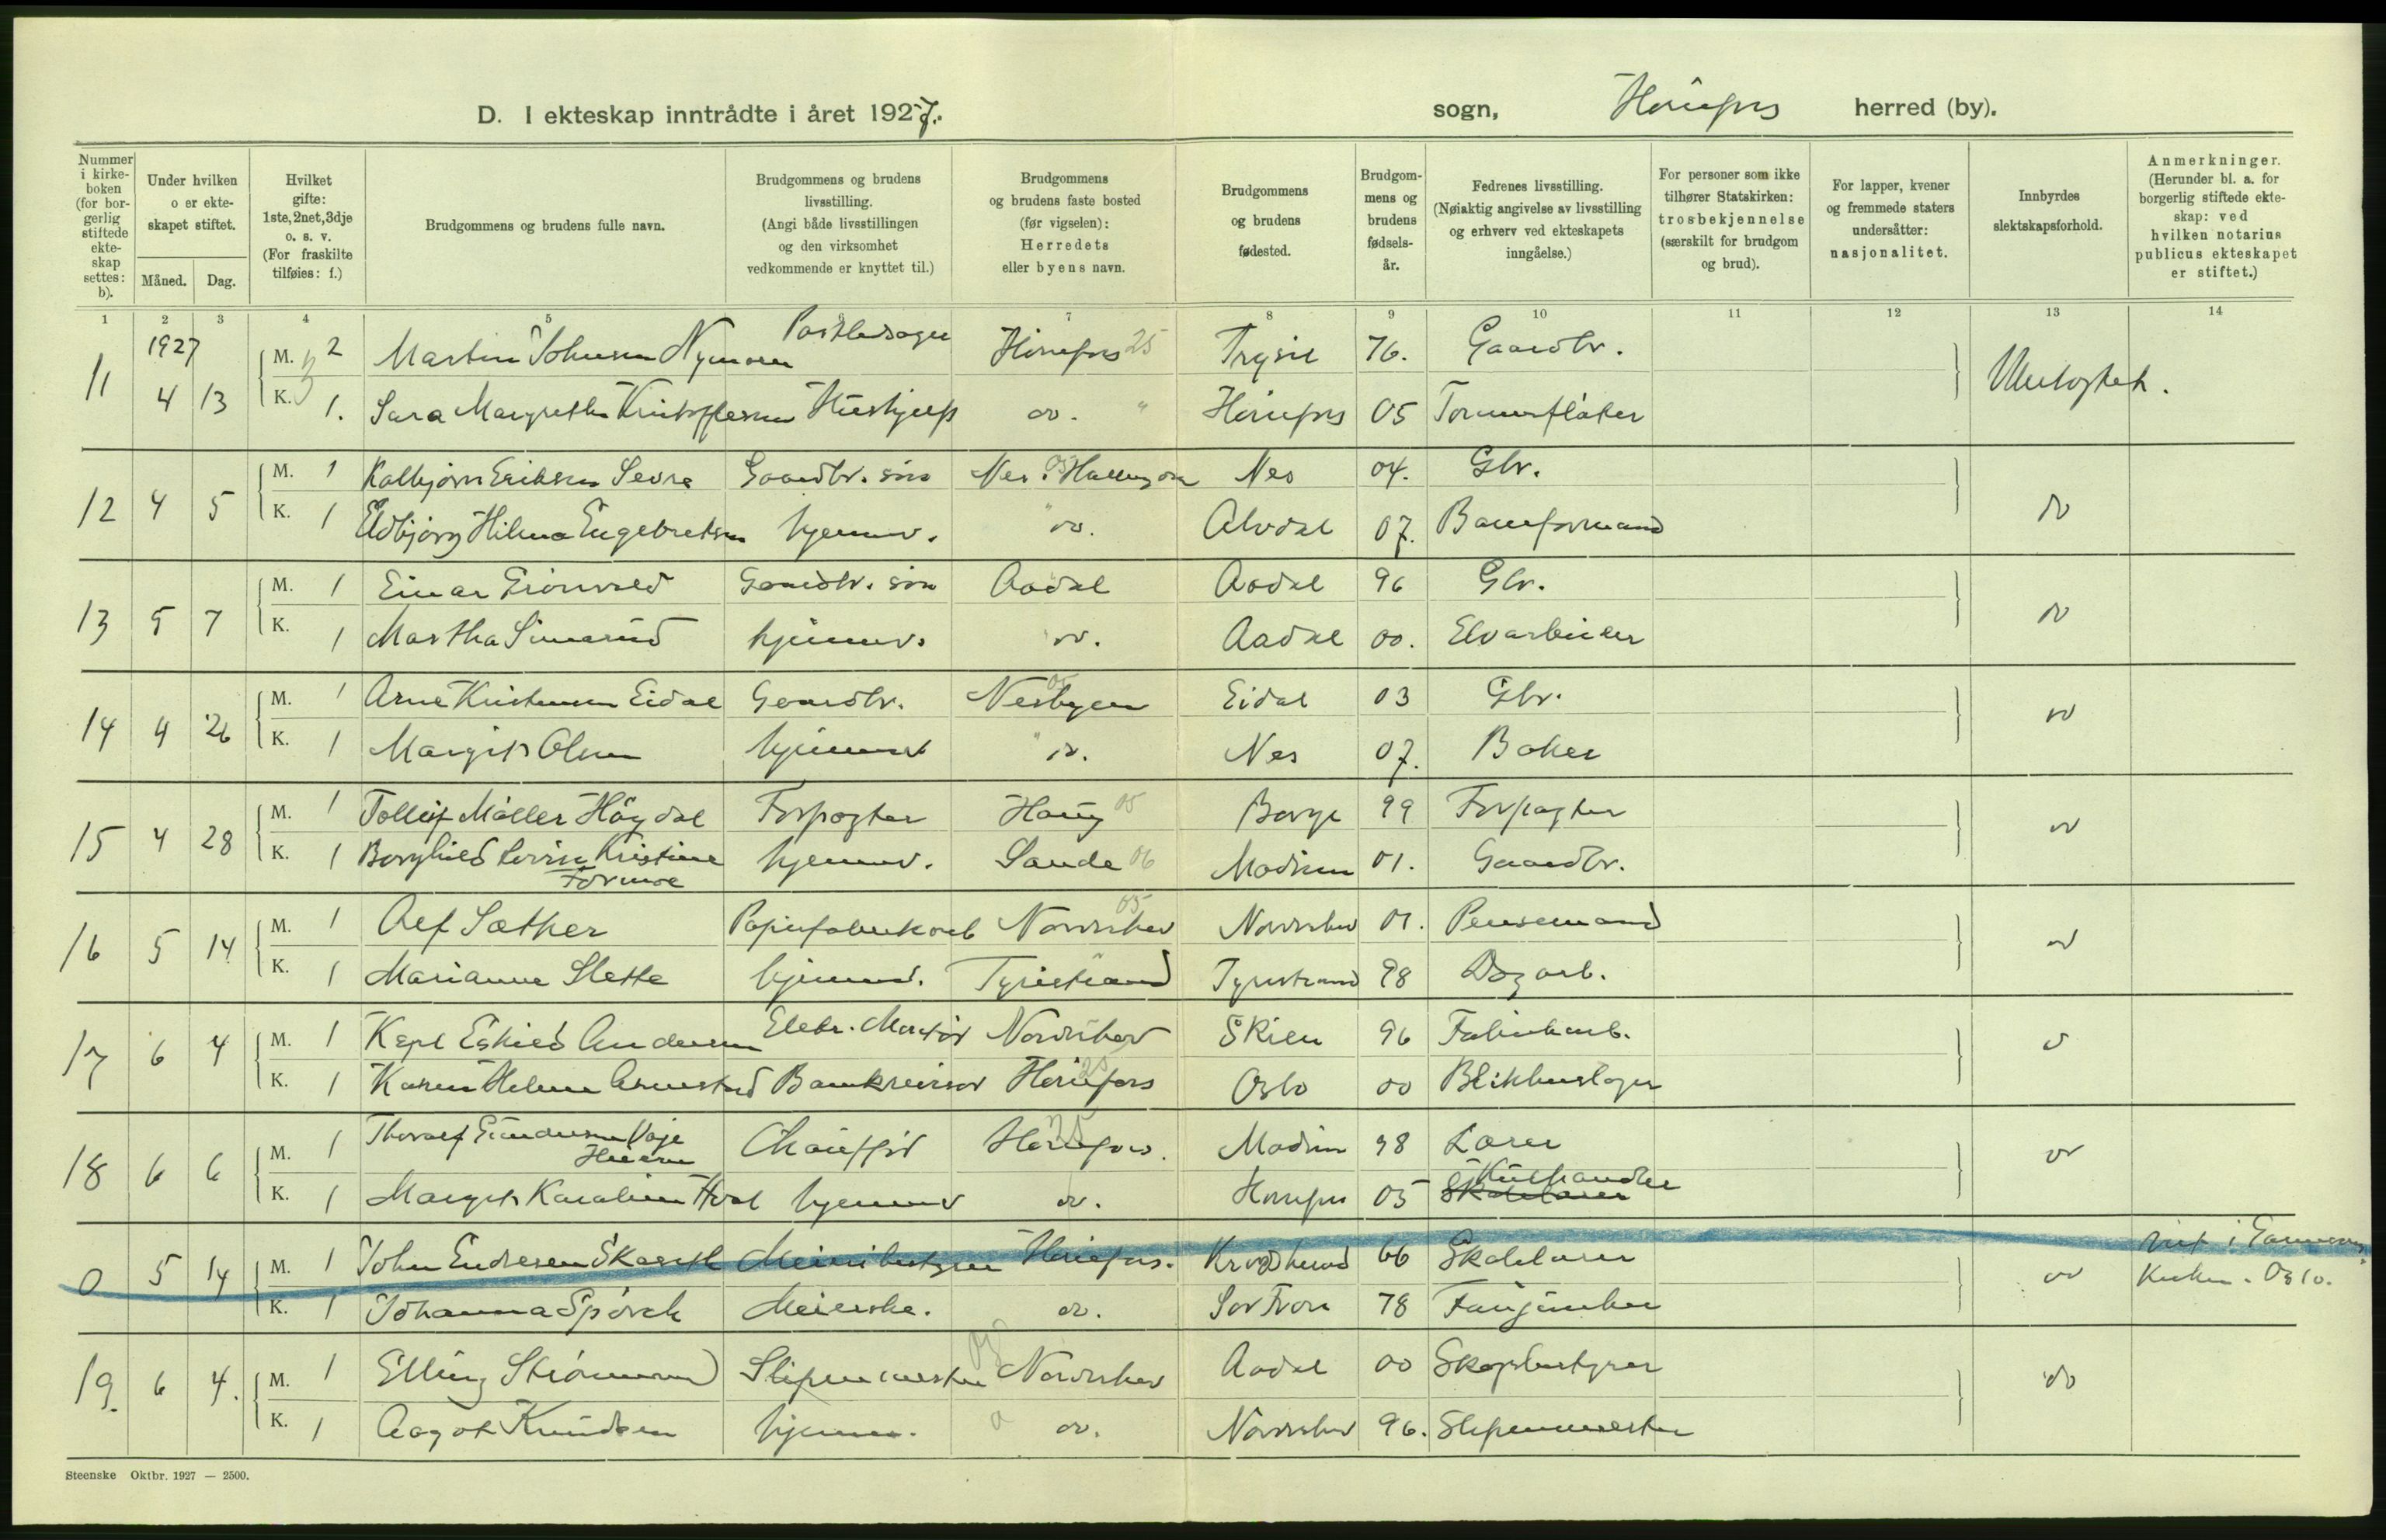 D. I ekteskap inntrådte i året 1927.
sogn, Hönefos herred (by).
Nummer i kirkeboken (for borgerlig stiftede ekteskap settes: b).
Under hvilken o er ekteskapet stiftet.
Måned. Dag.
Hvilket gifte: 1ste, 2net, 3dje o. s. v. (For fraskilte tilføies: f.)
Brudgommens og brudens fulle navn.
Brudgommens og brudens livsstilling. (Angi både livsstillingen og den virksomhet vedkommende er knyttet til.)
Brudgommens og brudens faste bosted (før vigselen): Herredets eller byens navn.
Brudgommens og brudens fødested.
Brudgommens og brudens fødselsår.
Fedrenes livsstilling. (Nøiaktig angivelse av livsstilling og erhverv ved ekteskapets inngåelse.)
For personer som ikke tilhører Statskirken: trosbekjennelse (særskilt for brudgom og brud).
For lapper, kvener og fremmede staters undersåtter: nasjonalitet.
Innbyrdes slektskapsforhold.
Anmerkninger. (Herunder bl. a. for borgerlig stiftede ekteskap: ved hvilken notarius publicus ekteskapet er stiftet.)
1 2 3 4 5 7 8 9 10 11 12 13 14
1927
11 4 13 M. 2 Martin Johnsen Nymoen Hönefos 25 Trysil 76. Gaardbr. Ubeslegtet.
K. 1. Sara Margrethe Kristoffersen Hushjelp do. " Hönefos 05 Tømmerfløter
12 4 5 M. 1 Kolbjørn Eriksen Sevre Gaardbr. søn Nes i Hallingdal 05 Nes 04. Gbr. do
K. 1 Eldbjørg Hilma Engebretsen hjemmev. do. Alvdal 07. Baneformand
13 5 7 M. 1 Einar Grönvold Gaardbr. søn Aadal Aadal 96 Gbr. do
K. 1 Martha Simerud hjemmev. do. Aadal 00. Elvarbeider
14 4 26 M. 1 Arne Kristensen Eidal Gaardbr. Nesbyen 05 Eidal 03 Gbr. do
K. 1 Margit Olsen hjemmev. " do. Nes 07. Baker
15 4 28 M. 1 Tolleif Möller Høgdal Forpagter Haug 05 Borge 99 Forpagter do
K. 1 Borghild Lovise Kristine Formoe hjemmev. Sande 06 Modum 01. Gaardbr.
16 5 14 M. 1 Alf Sæther Papirfabrikarb Norderhov 05 Norderhov 01. Pensemand do
K. 1 Marianne Slette hjemmev. Tyristrand Tyristrand 98 Dagarb.
17 6 4 M. 1 Karl Eskild Andersen Elektr. Montør Norderhov Skien 96 Fabrikarb. do
K. 1 Karen Helene Arnestad Bankrevisor Hönefoss 25 Oslo 00 Blikkenslager
18 6 6 M. 1 Thoralf Gundersen Vaje Chauffør Hönefoss. 25 Modum 98 Lærer do
K. 1 Margit Karoline Hval hjemmev do. Hönefos 05 Skolelærer
0 5 14 M. 1 John Endresen Skarseth Meieribestyrer Hönefos. Krødsherad 66 Skolelærer do Viet i Garnisons
Kirken. Oslo.
K. 1 Johanna Spørck Meierske. do. Sør Fron 78 Fanejunker
19. 6 4. M. 1 Elling Strömmen Slipemester Norderhov Aadal 00 Skogsbestyrer do
K. 1 Aagot Knudsen hjemme. do. Norderhov 96. Slipemester
Steenske Oktbr. 1927 — 2500.